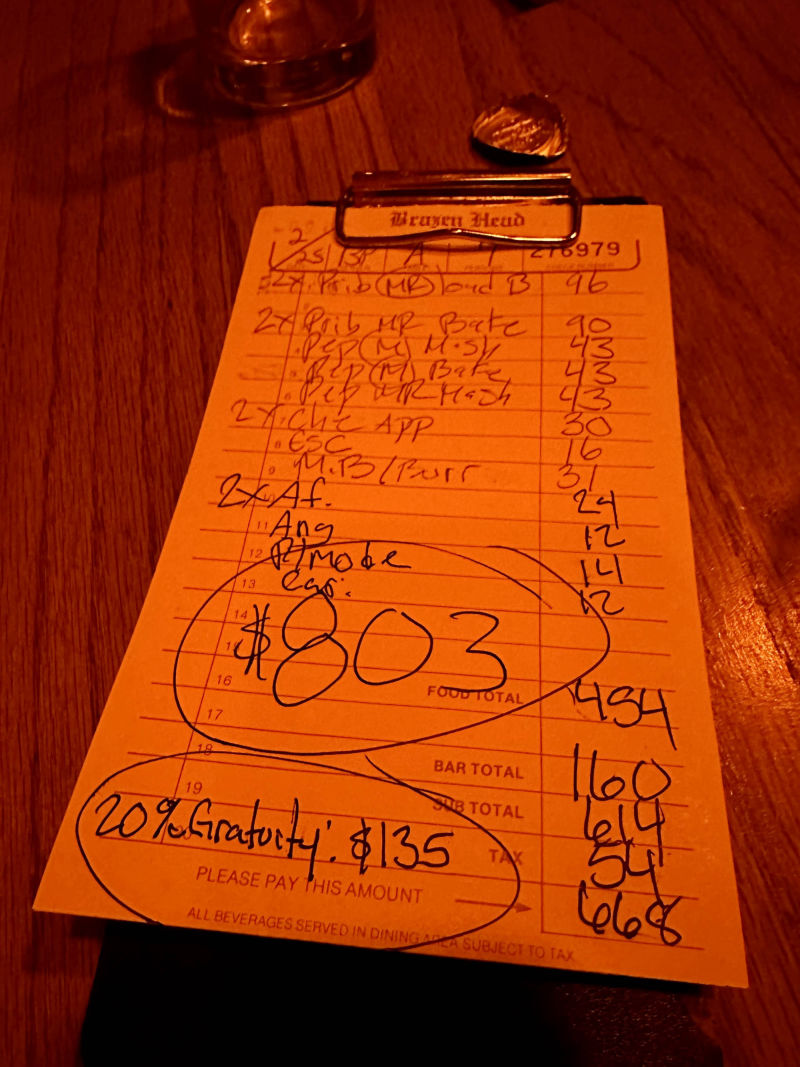 Brazen Head
2/25 A 276979
2x Prib (MR) B 96
2x Prib MR Bake 90
Pep (M) Mash 43
Pep (M) Bake 43
6 Pep MR Mash 43
2x APP 30
8 ESC 16
9 M.B/Burr 31
2x Af. 24
11 Ang 12
12 14
13 12
14
$803
16 FOOD TOTAL 454
17
18 BAR TOTAL 160
19 SUB TOTAL 614
20% Gratuity: $135 TAX 54
PLEASE PAY THIS AMOUNT 668
ALL BEVERAGES SERVED IN DINING AREA SUBJECT TO TAX